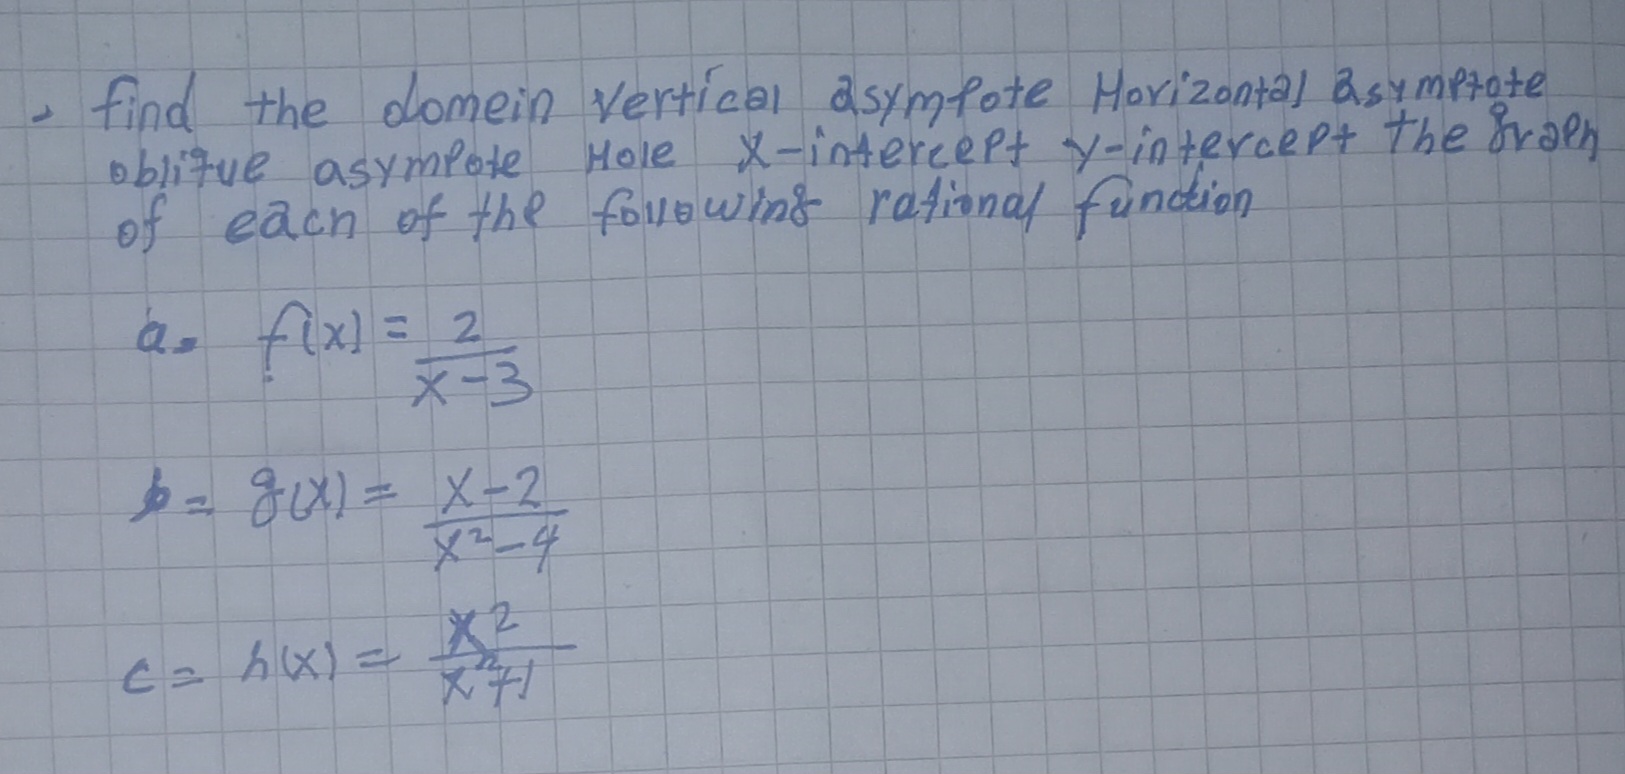 - find the domein vertical asympote Horizontal asymptote
oblique asympote Hole x-intercept y-intercept the graph
of each of the following rational function
a. f(x) = 2/(x-3)
b = g(x) = (x-2)/(x²-4)
c = h(x) = x²/(x²+1)